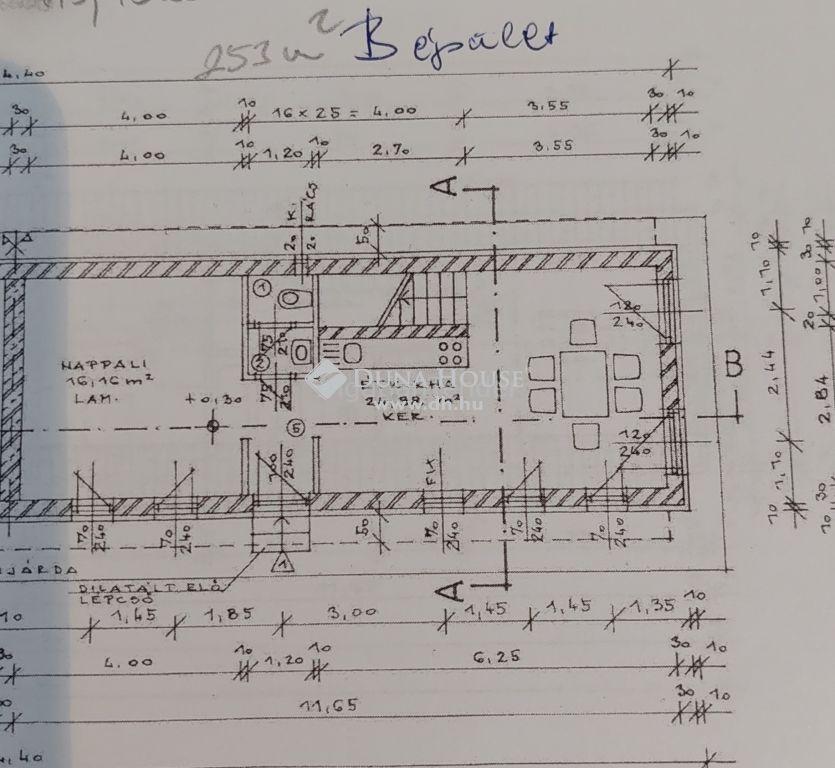 253 m² Beépület
4,40
30 4,00 10 16 x 25 = 4,00 3,55 30 10
30 4,00 10 1,20 10 2,70 3,55 30 10
A
20 K.
20 RÁCS
50
1
75
210
75
210
120
240
NAPPALI
16,16 m²
LAM.
+0,30
5
DUNA HOUSE
www.dh.hu
KER.
B
120
240
100
240
FIX
70
240
70
240
50
70
240
70
240
70
240
JÁRDA
1
DILATÁLT ELŐ
LÉPCSŐ
A
10 1,45 1,85 3,00 1,45 1,45 1,35 10
30 4,00 10 1,20 10 6,25 30 10
11,65 30 10
4,40
10 1,10 2,44 1,10 10
10 30 1,00 20 2,84 30 10